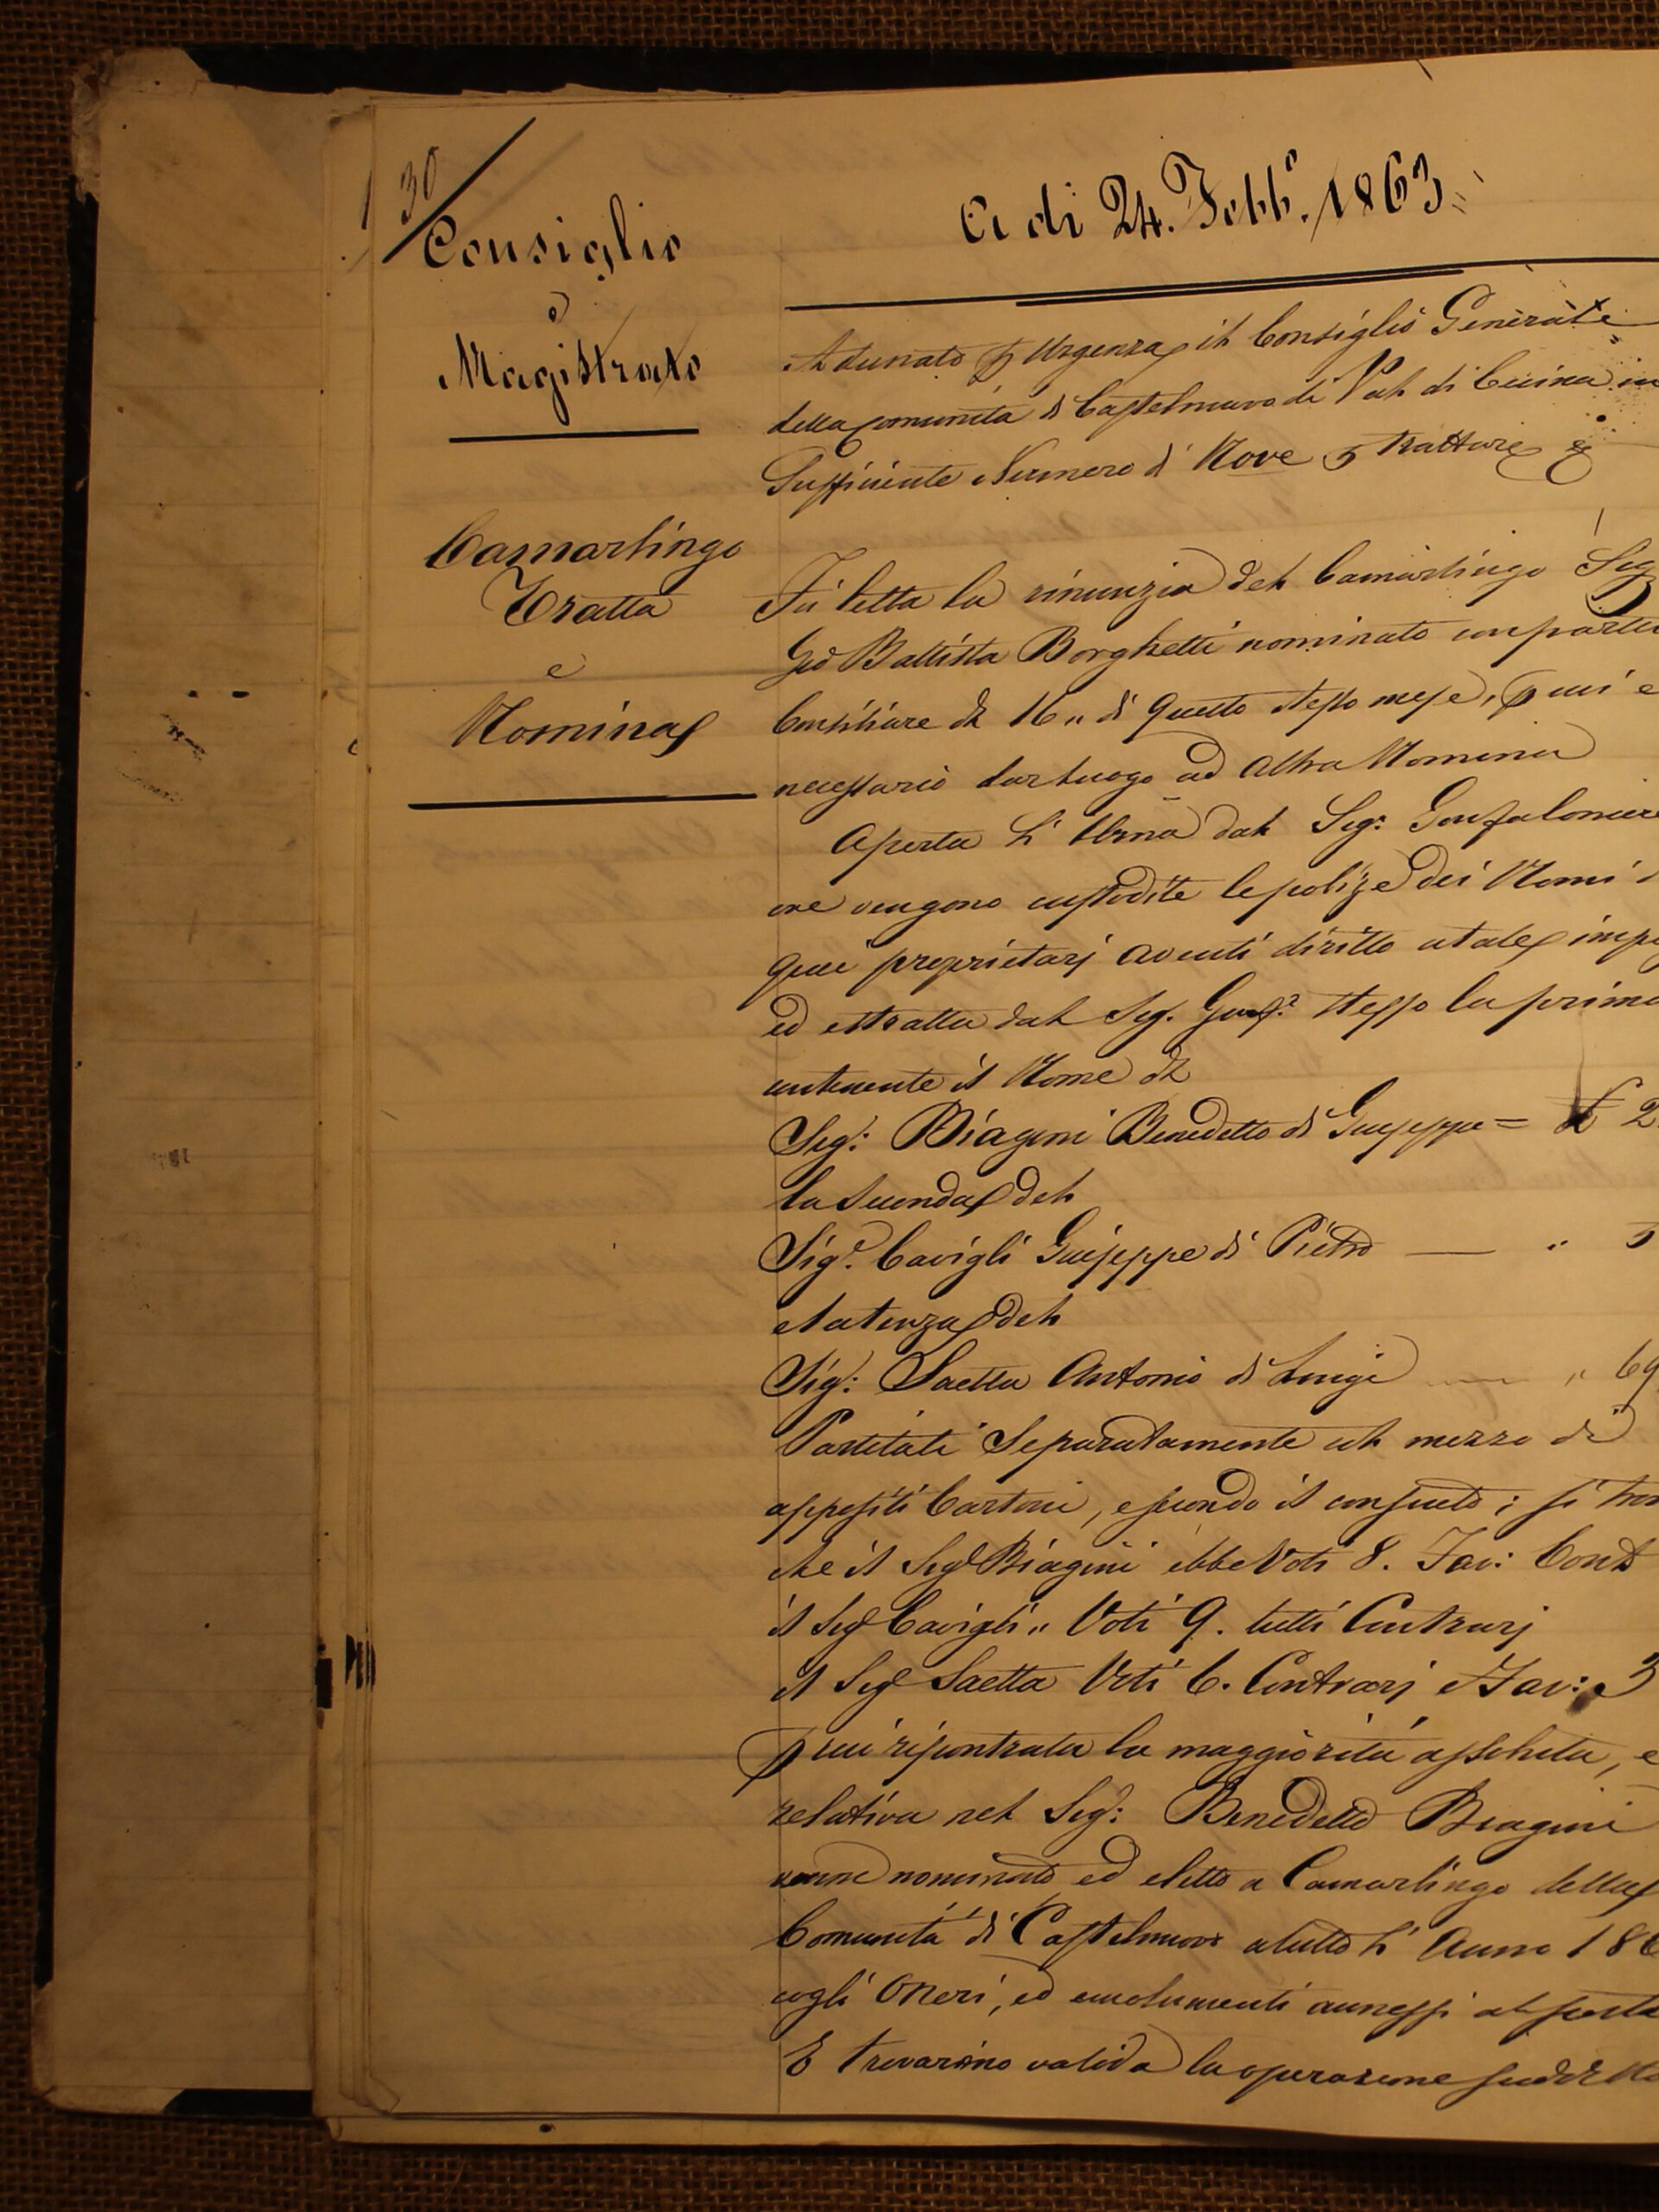 30
Consiglio
e
Magistrato
A di 24. Febb.º 1863.
Adunato p Urgenza il Consiglio Generale
della Comunità di Castelnuovo di Val di Cecina in
Sufficiente Numero di Nove p trattare &
Camarlingo
Tratta
e
Nomina
Fù letta la rinunzia del Camarlingo Sig
Gio Battista Borghetti nominato con partito
Consiliare de 16 „ di questo stesso mese, p cui e
necessario dar luogo ad altra Nomina
Aperta l' Urna dal Sig: Gonfaloniere
ove vengono custodite le polize dei Nomi
quei proprietarj aventi diritto a tale
ed estratta dal Sig. Gonf.e stesso la prima
contenente il Nome del
Sig: Biagini Benedetto di Giuseppe = £ 2
la Seconda del
Sig.e Cavigli Giuseppe di Pietro — „
e la terza del
Sig: Saetta Antonio di Luigi „ 69
Partitati Separatamente col mezzo di
appositi Cartoni, e secondo il consueto; si
che il Sige Biagini ebbe Voti 8. Fav: Cont
il Sige Cavigli „ Voti 9. tutti Contrarj
il Sige Saetta Voti 6. Contrarj e Fav: 3
p cui riscontrata la maggiorità assoluta, e
relativa nel Sig: Benedetto Biagini
venne nominato ed eletto a Camarlingo della
Comunità di Castelnuovo a tutto l' Anno 186
cogli Oneri, ed emolumenti annessi al posto
E trovarono valida la operazione suddetta